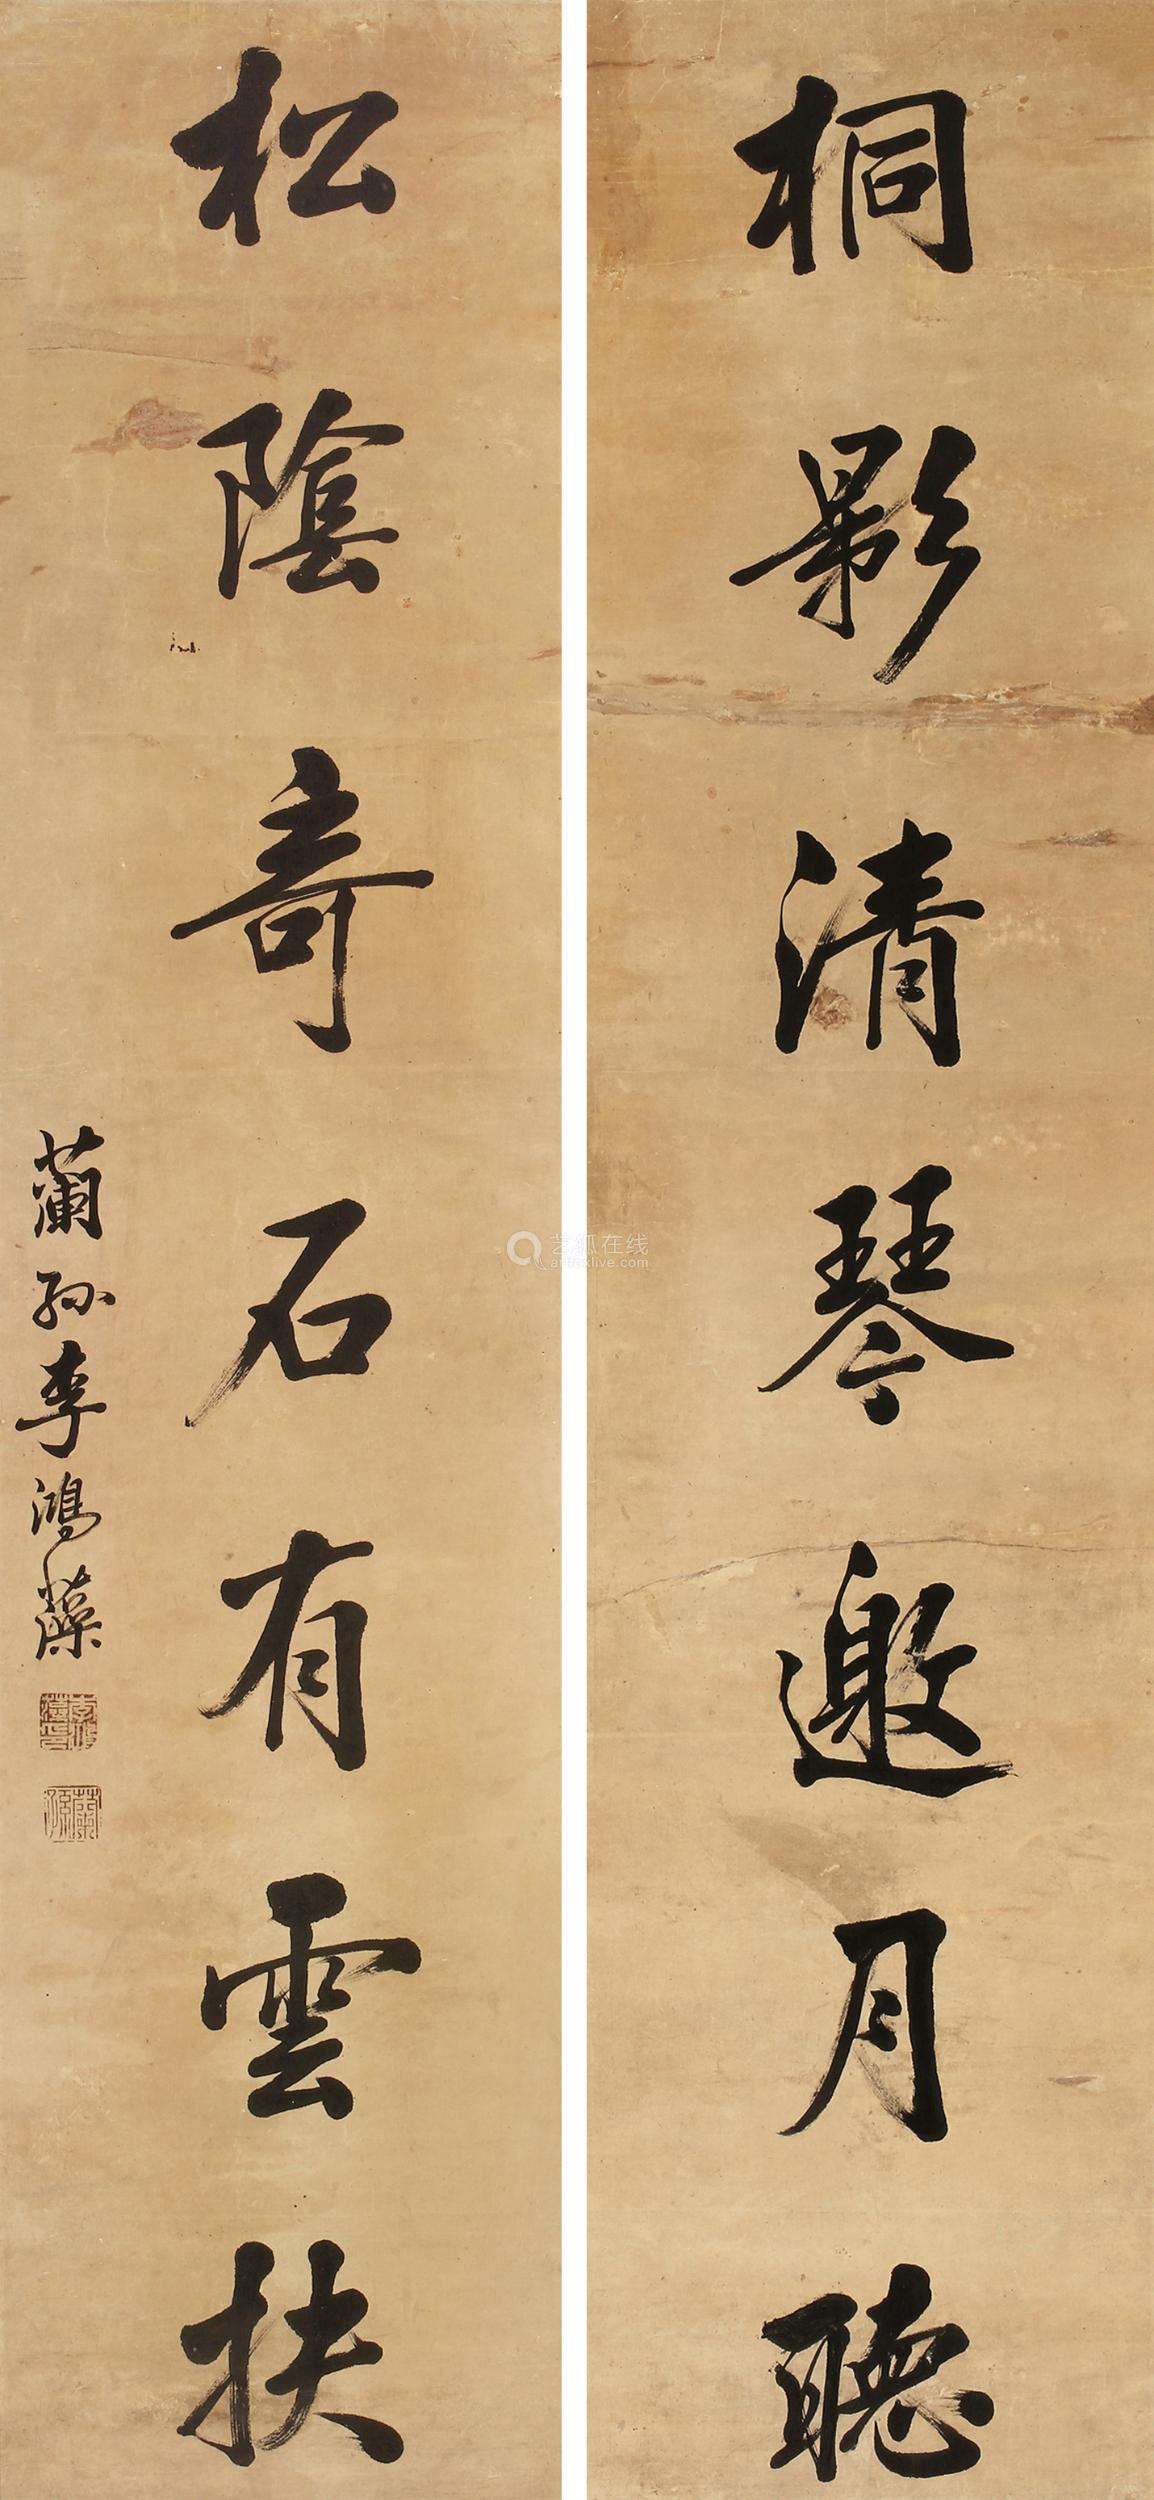 桐影清琴邀月聽
松陰奇石有雲扶
蘭孫李鴻藻
艺狐在线
artfoxlive.com